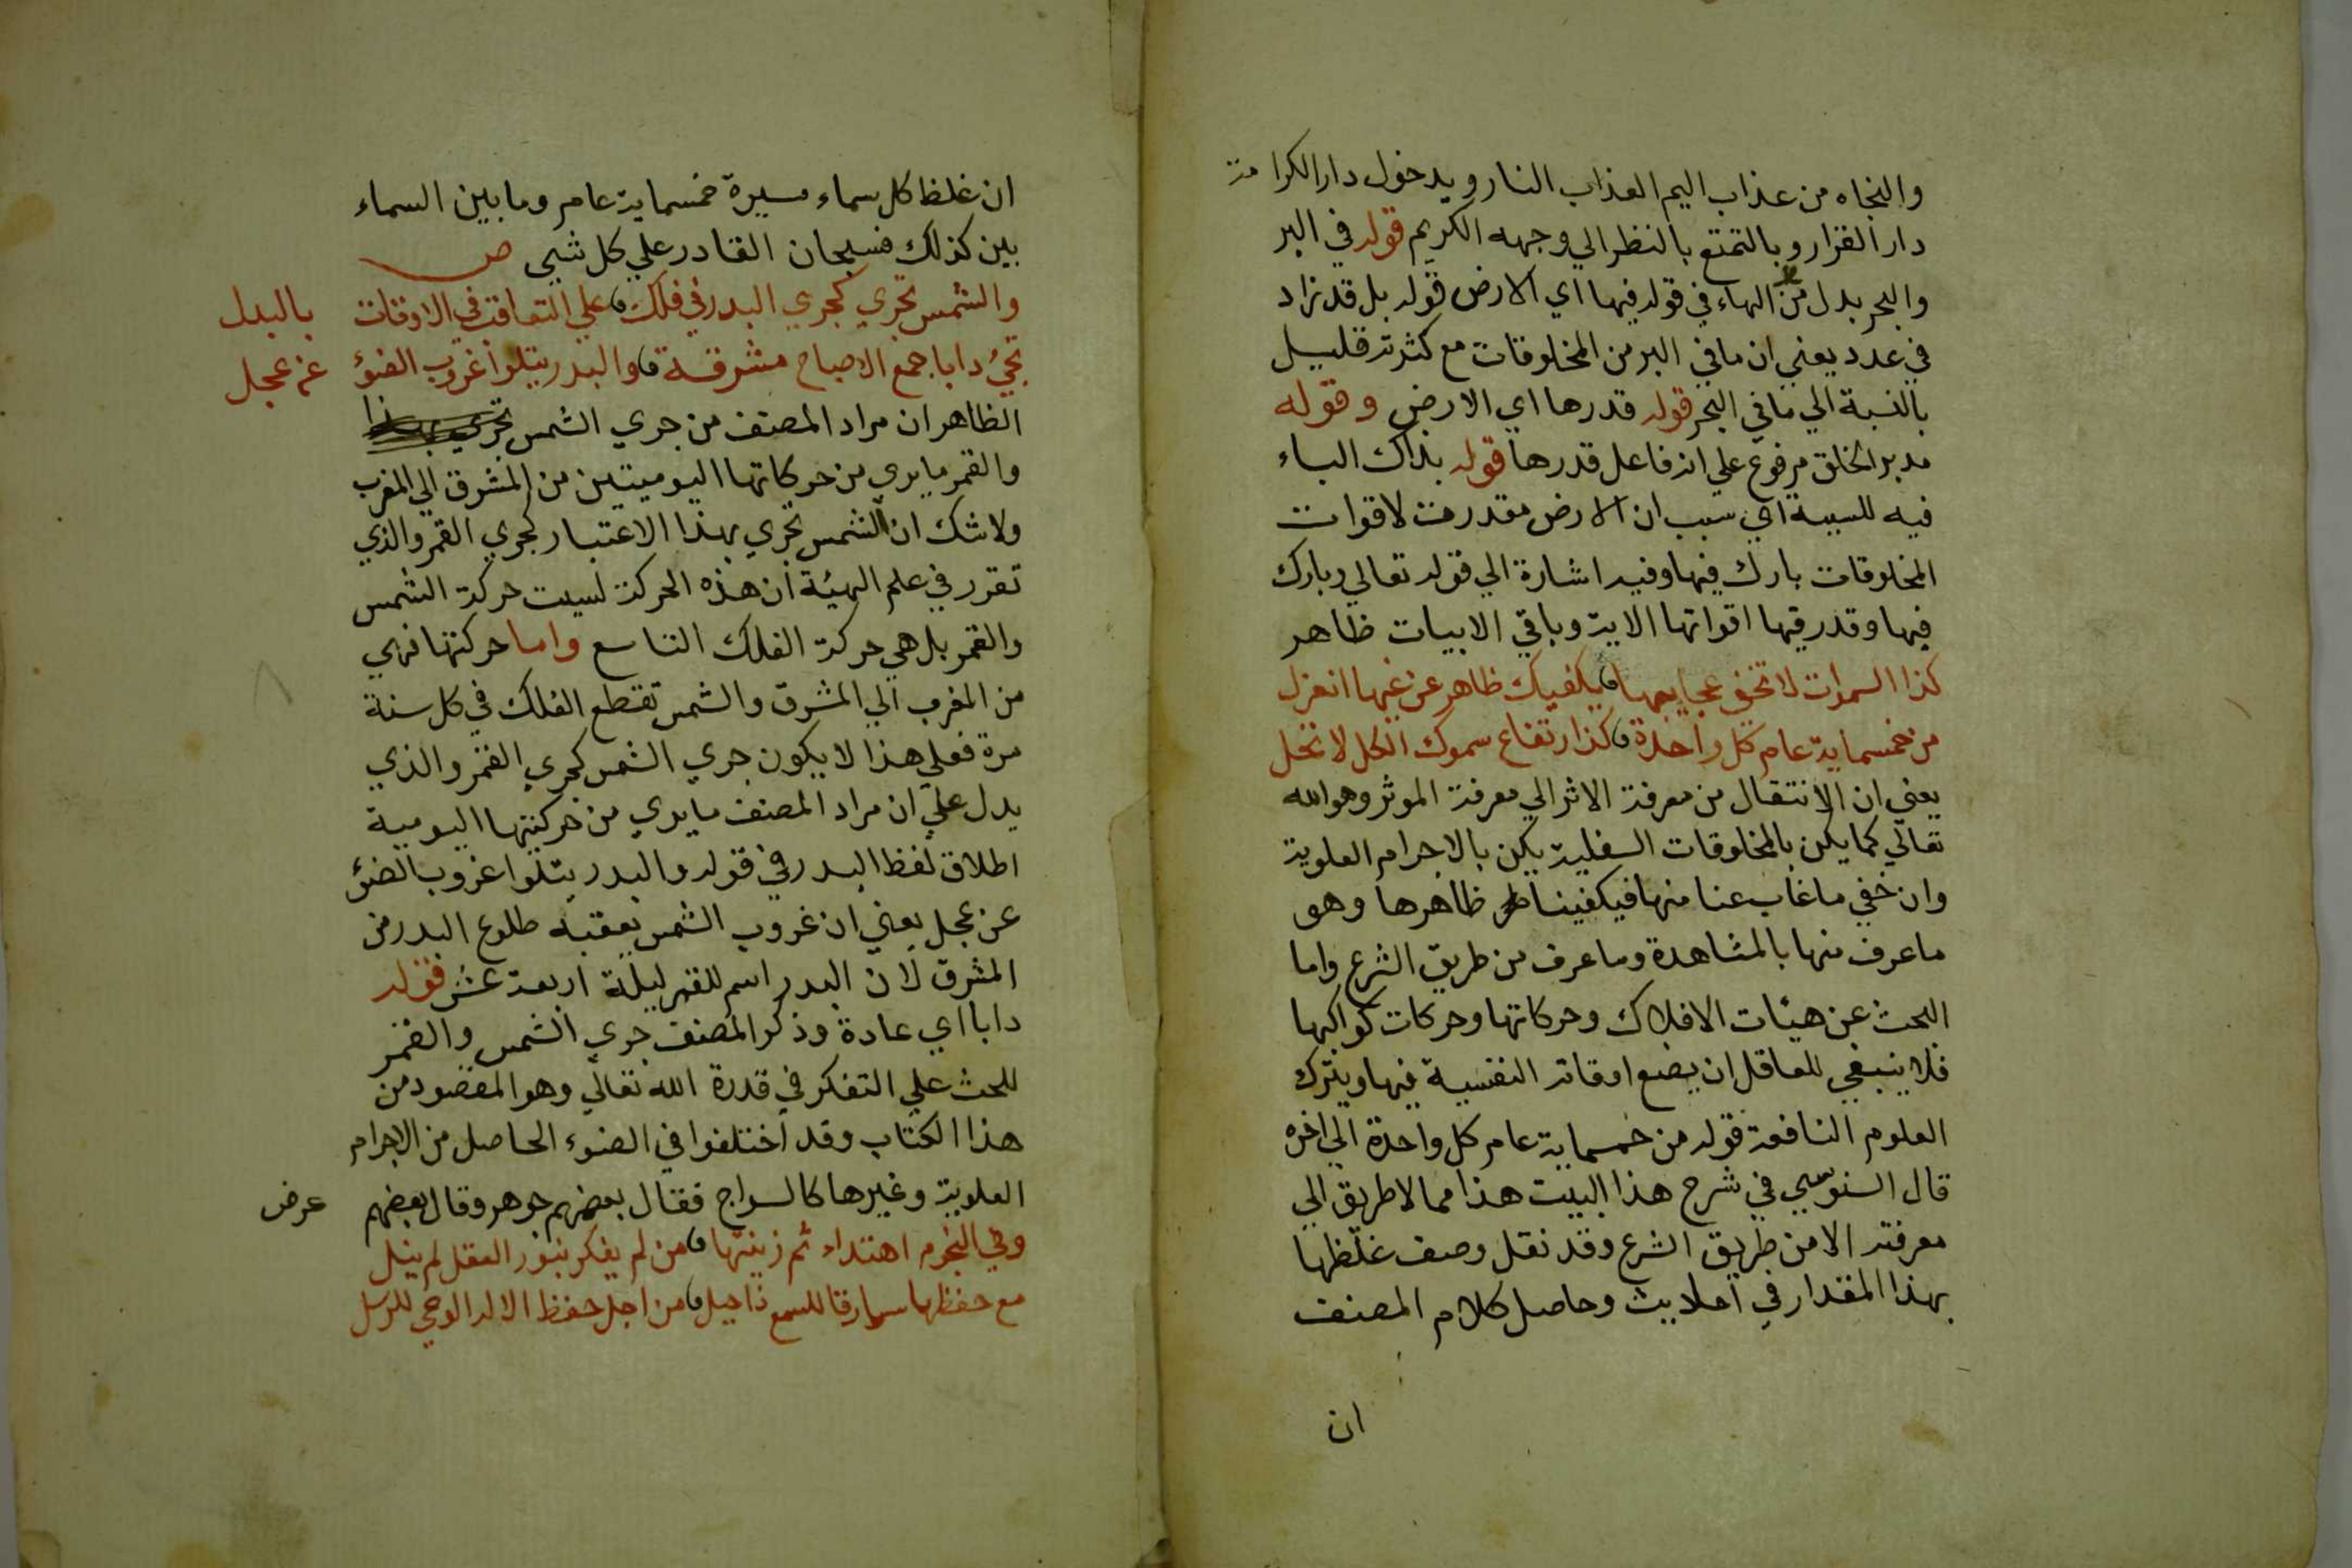 والنجاه من عذاب اليم العذاب النار و بدخول دار الكرامة
دار القرار وبالتمتع بالنظر الي وجهه الكريم قوله في البر
والبحر بدل من الهاء في قوله فيها اي الارض قوله بل قد زاد
في عدد يعني ان ما في البر من المخلوقات مع كثرته قليل
بالنسبة الي ما في البحر قوله قدرها اي الارض وقوله
مدبر الخلق مرفوع علي انه فاعل قدرها قوله بذاك الباء
فيه للسببية اي سبب ان الارض مقدرت لاقوات
المخلوقات بارك فيها وفيه اشارة الي قوله تعالي وبارك
فيها وقدر فيها اقواتها الاية وباقي الابيات ظاهر
كذا السموات لا تخفي عجايبها يكفيك ظاهر عن غيها انعزل
من خمسماية عام كل واحدة كذا ارتفاع سموك الكل لا تخل
يعني ان الانتقال من معرفة الاثر الي معرفة الموثر وهو الله
تعالي كما يكن بالمخلوقات السفلية يكن بالاجرام العلوية
وان خفي ما غاب عنا منها فيكفينا ظاهرها وهو
ما عرف منها بالمشاهدة وما عرف من طريق الشرع واما
البحث عن هيئات الافلاك وحركاتها وحركات كواكبها
فلا ينبغي للعاقل ان يضع اوقاته النفسية فيها ويترك
العلوم النافعة قوله من خمسماية عام كل واحدة الي اخره
قال السنوسي في شرح هذا البيت هذا مما لا طريق الي
معرفته الا من طريق الشرع وقد نقل وصف غلظها
بهذا المقدار في احاديث وحاصل كلام المصنف
ان
ان غلظ كل سماء مسيرة خمسماية عام وما بين السماء
بين كذلك فسبحان القادر علي كل شيي ص
والشمس تجري كجري البدر في فلك علي التعاقب في الاوقات بالبدل
تجيء دابا جمع الاصباح مشرقة والبدر يتلوا غروب الضوء عن عجل
الظاهر ان مراد المصنف من جري الشمس
والقمر ما يري من حركاتها اليوميتين من المشرق الي المغرب
ولا شك ان الشمس تجري بهذا الاعتبار كجري القمر والذي
تقرر في علم الهيئة ان هذه الحركة ليست حركة الشمس
والقمر بل هي حركة الفلك التاسع واما حركتها فهي
من المغرب الي المشرق والشمس تقطع الفلك في كل سنة
مرة فعلي هذا لا يكون جري الشمس كجري القمر والذي
يدل علي ان مراد المصنف ما يري من حركتها اليومية
اطلاق لفظ البدر في قوله والبدر يتلوا غروب الضوء
عن عجل يعني ان غروب الشمس يعقبه طلوع البدر من
المشرق لان البدر اسم للقمر ليلة اربعة عشر فقوله
دابا اي عادة وذكر المصنف جري الشمس والقمر
للحث علي التفكر في قدرة الله تعالي وهو المقصود من
هذا الكتاب وقد اختلفوا في الضوء الحاصل من الاجرام
العلوية وغيرها كالسراج فقال بعضهم جوهر وقال بعضهم عرض
وفي النجوم اهتداء ثم زينتها من لم يفكر بنور العقل لم ينل
مع حفظها سارقا للسمع ذا حيل من اجل حفظ الاله الوحي للرسل